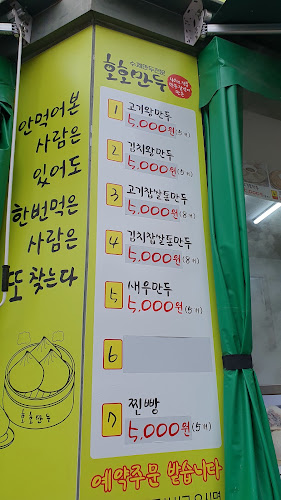 안먹어본
사람은
있어도
한번먹은
사람은
또 찾는다
호호만두
수제만두전문
호호만두
1 고기왕만두
5,000원(5개)
2 김치왕만두
5,000원(5개)
3 고기찹쌀통만두
5,000원(8개)
4 김치찹쌀통만두
5,000원(8개)
5 새우만두
5,000원(8개)
6
7 찐빵
5,000원(5개)
예약주문 받습니다